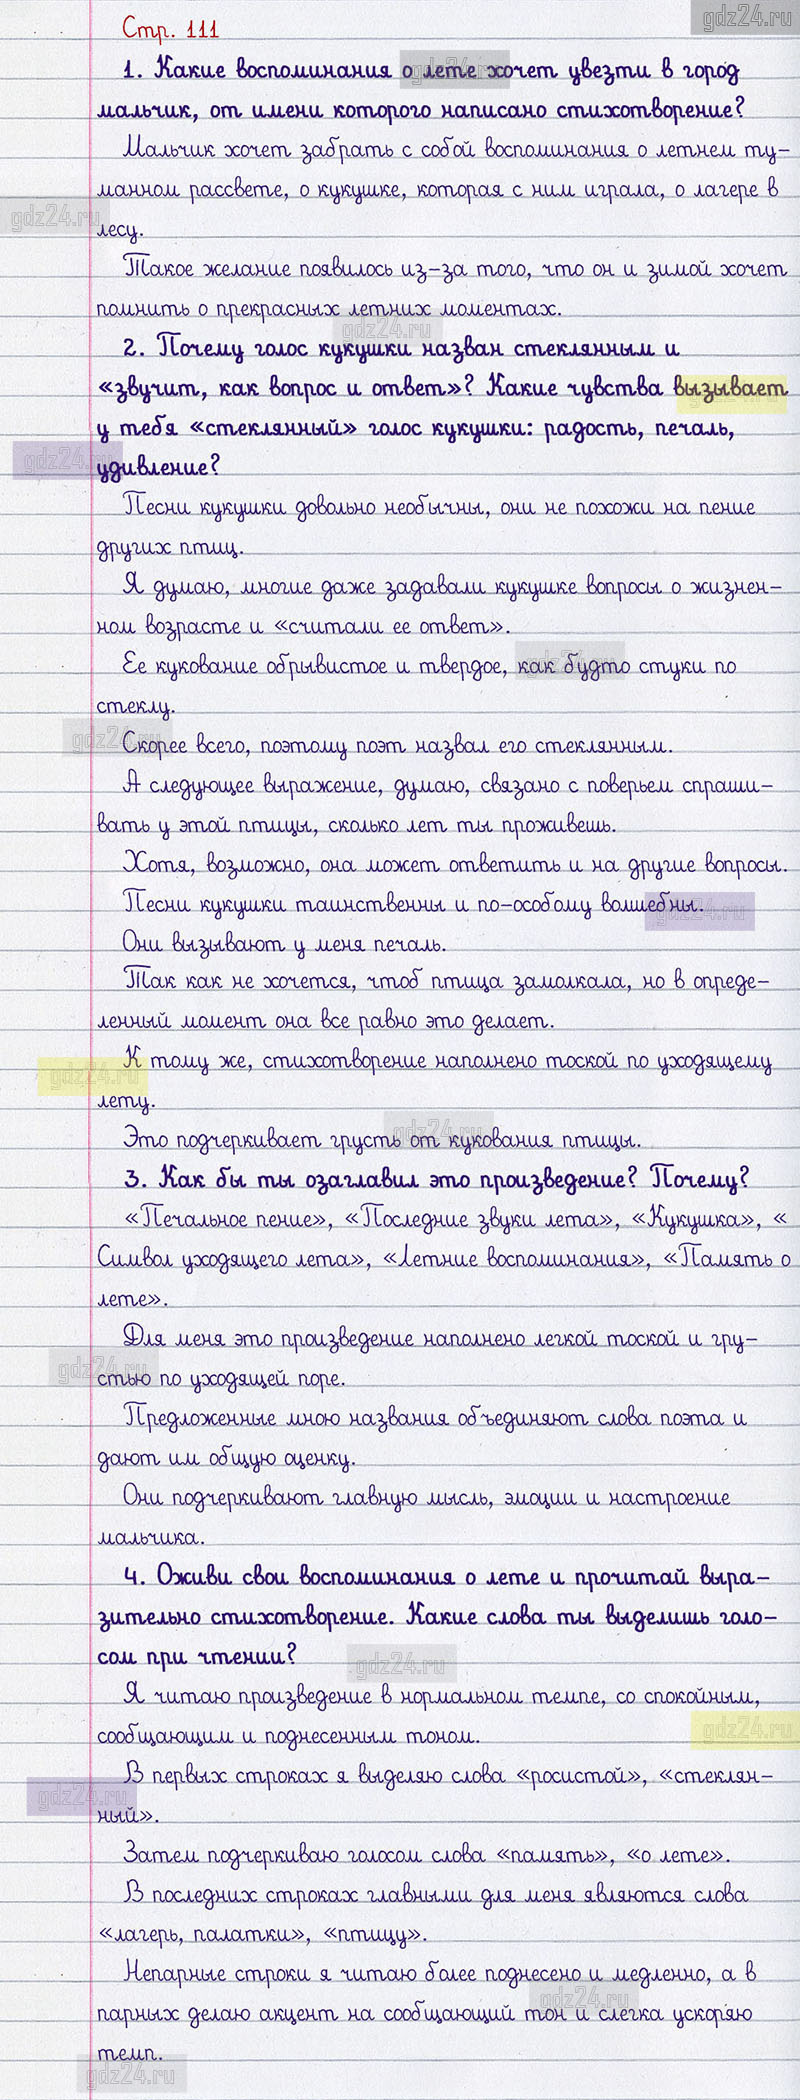 gdz24.ru
Стр. 111
1. Какие воспоминания о лете хочет увезти в город
gdz24.ru
мальчик, от имени которого написано стихотворение?
Мальчик хочет забрать с собой воспоминания о летнем ту-
манном рассвете, о кукушке, которая с ним играла, о лагере в
gdz24.ru
лесу.
Такое желание появилось из-за того, что он и зимой хочет
помнить о прекрасных летних моментах.
gdz24.ru
2. Почему голос кукушки назван стеклянным и
«звучит, как вопрос и ответ»? Какие чувства вызывает
gdz24.ru
у тебя «стеклянный» голос кукушки: радость, печаль,
gdz24.ru
удивление?
Песни кукушки довольно необычны, они не похожи на пение
других птиц.
Я думаю, многие даже задавали кукушке вопросы о жизнен-
ном возрасте и «считали ее ответ».
Ее кукование обрывистое и твердое, как будто стуки по
gdz24.ru
стеклу.
gdz24.ru
Скорее всего, поэтому поэт назвал его стеклянным.
А следующее выражение, думаю, связано с поверьем спраши-
вать у этой птицы, сколько лет ты проживешь.
Хотя, возможно, она может ответить и на другие вопросы.
Песни кукушки таинственны и по-особому волшебны.
gdz24.ru
Они вызывают у меня печаль.
Так как не хочется, чтоб птица замолкала, но в опреде-
ленный момент она все равно это делает.
К тому же, стихотворение наполнено тоской по уходящему
gdz24.ru
лету.
Это подчеркивает грусть от кукования птицы.
gdz24.ru
3. Как бы ты озаглавил это произведение? Почему?
«Печальное пение», «Последние звуки лета», «Кукушка», «
Символ уходящего лета», «Летние воспоминания», «Память о
лете».
Для меня это произведение наполнено легкой тоской и гру-
gdz24.ru
стью по уходящей поре.
Предложенные мною названия объединяют слова поэта и
дают им общую оценку.
Они подчеркивают главную мысль, эмоции и настроение
мальчика.
4. Оживи свои воспоминания о лете и прочитай выра-
зительно стихотворение. Какие слова ты выделишь голо-
сом при чтении?
gdz24.ru
Я читаю произведение в нормальном темпе, со спокойным,
сообщающим и поднесенным тоном.
gdz24.ru
В первых строках я выделяю слова «росистой», «стеклян-
gdz24.ru
ный».
Затем подчеркиваю голосом слова «память», «о лете».
В последних строках главными для меня являются слова
«лагерь, палатки», «птицу».
Непарные строки я читаю более поднесено и медленно, а в
gdz24.ru
парных делаю акцент на сообщающий тон и слегка ускоряю
темп.
gdz24.ru